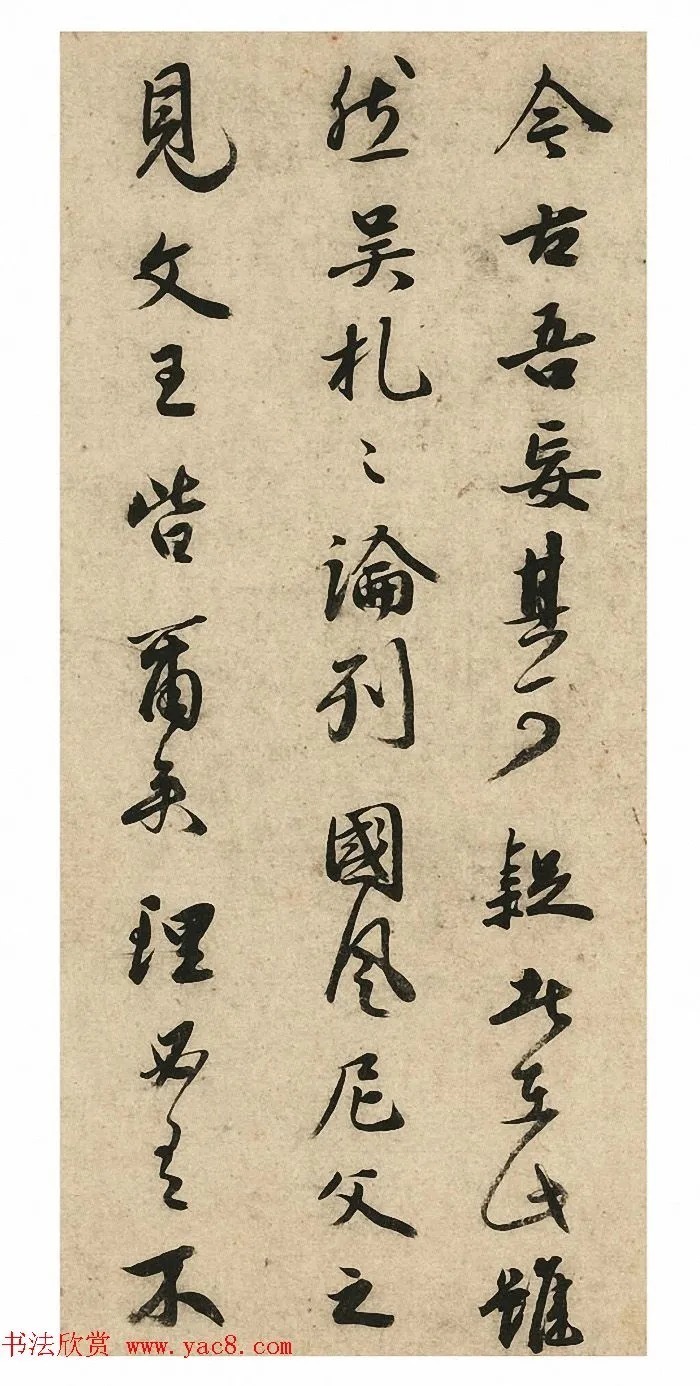 今古吾其可疑者在此雖
然吴札之論列國風尼父之
見文王皆爾矣理必有不
书法欣赏 www.yac8.com